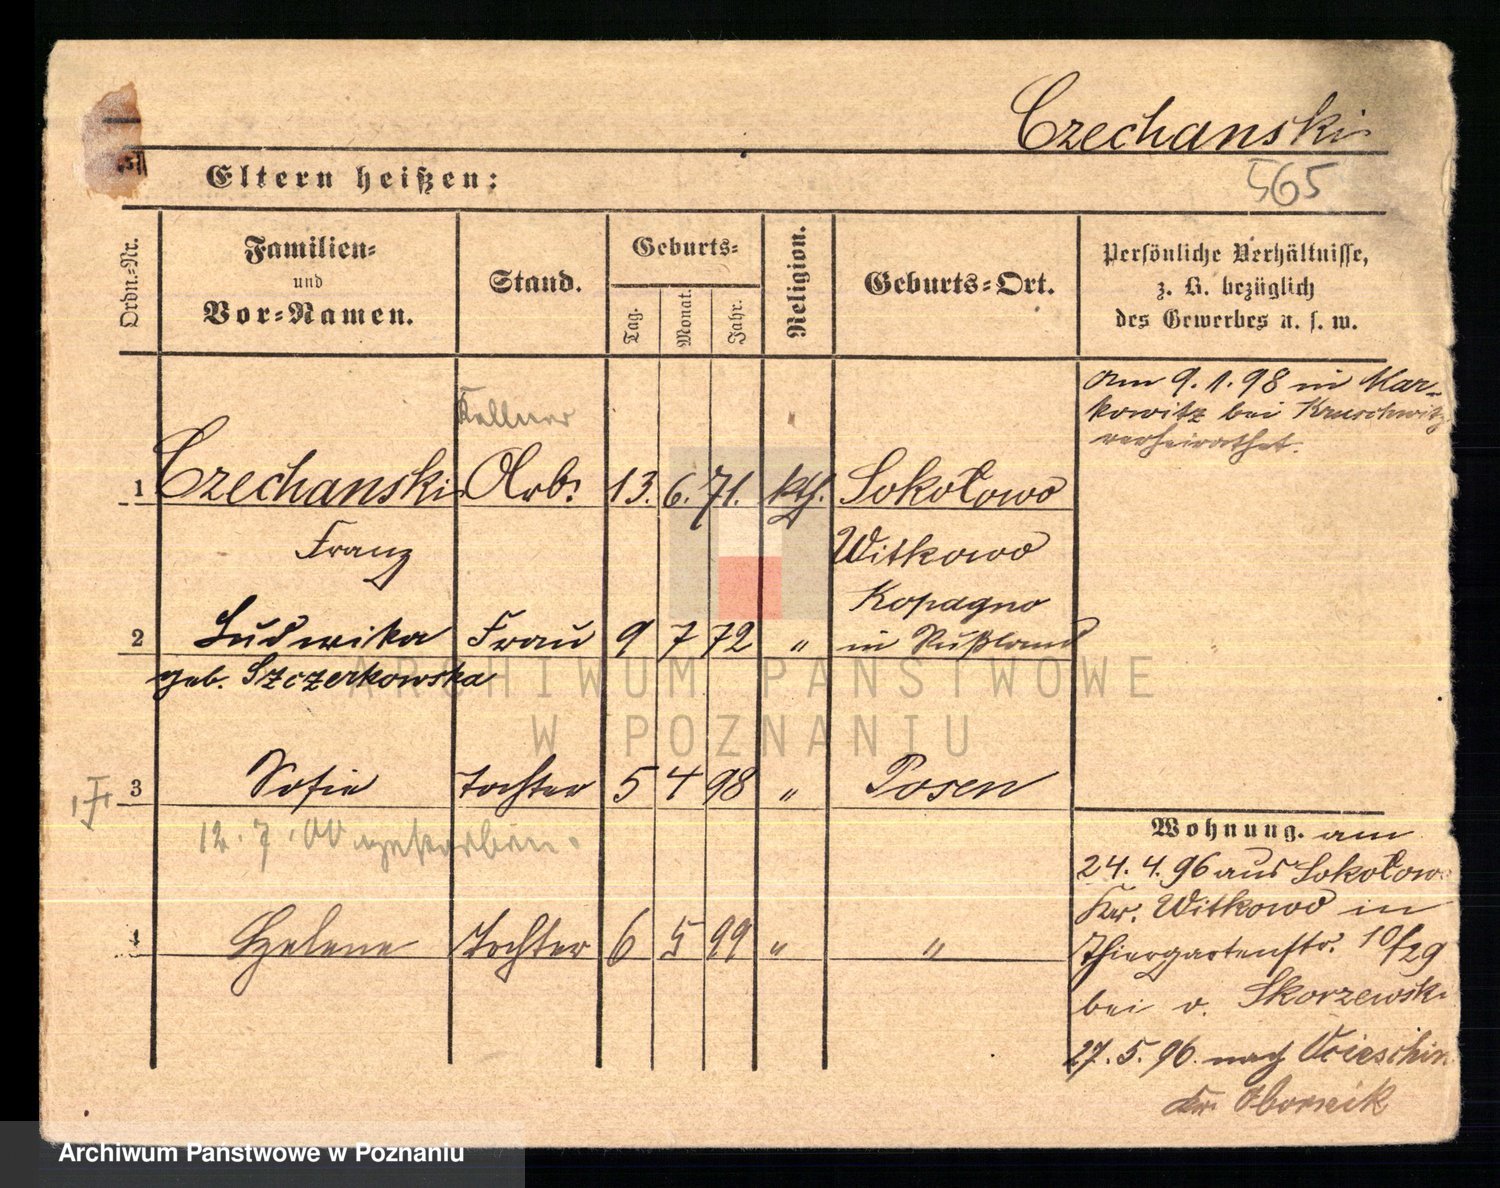 Czechanski
565
Eltern heißen:
Ordn.-Nr.
Familien-
und
Vor-Namen.
Stand.
Geburts-
Tag.
Monat.
Jahr.
Religion.
Geburts-Ort.
Persönliche Verhältnisse,
z. B. bezüglich
des Gewerbes u. s. w.
am 9.1.98 in Mar-
kowitz bei Kruschwitz
verheirathet.
Kellner
1 Czechanski Arb. 13. 6. 71. kth. Sokołowo
Franz Witkowo
Kopagno
2 Ludwika Frau 9 7 72 " in Rußland
geb. Szczerkowska
3 Sofie Tochter 5 4 98 " Posen
12.7.00 gestorben.
4 Helene Tochter 6 5 99 " "
Wohnung. am
24.4.96 aus Sokołowo
Kr. Witkowo in
Thiergartenstr. 10/29
bei v. Skorzewski
27.5.96. nach
Kr. Obornik
ARCHIWUM PAŃSTWOWE
W POZNANIU
Archiwum Państwowe w Poznaniu